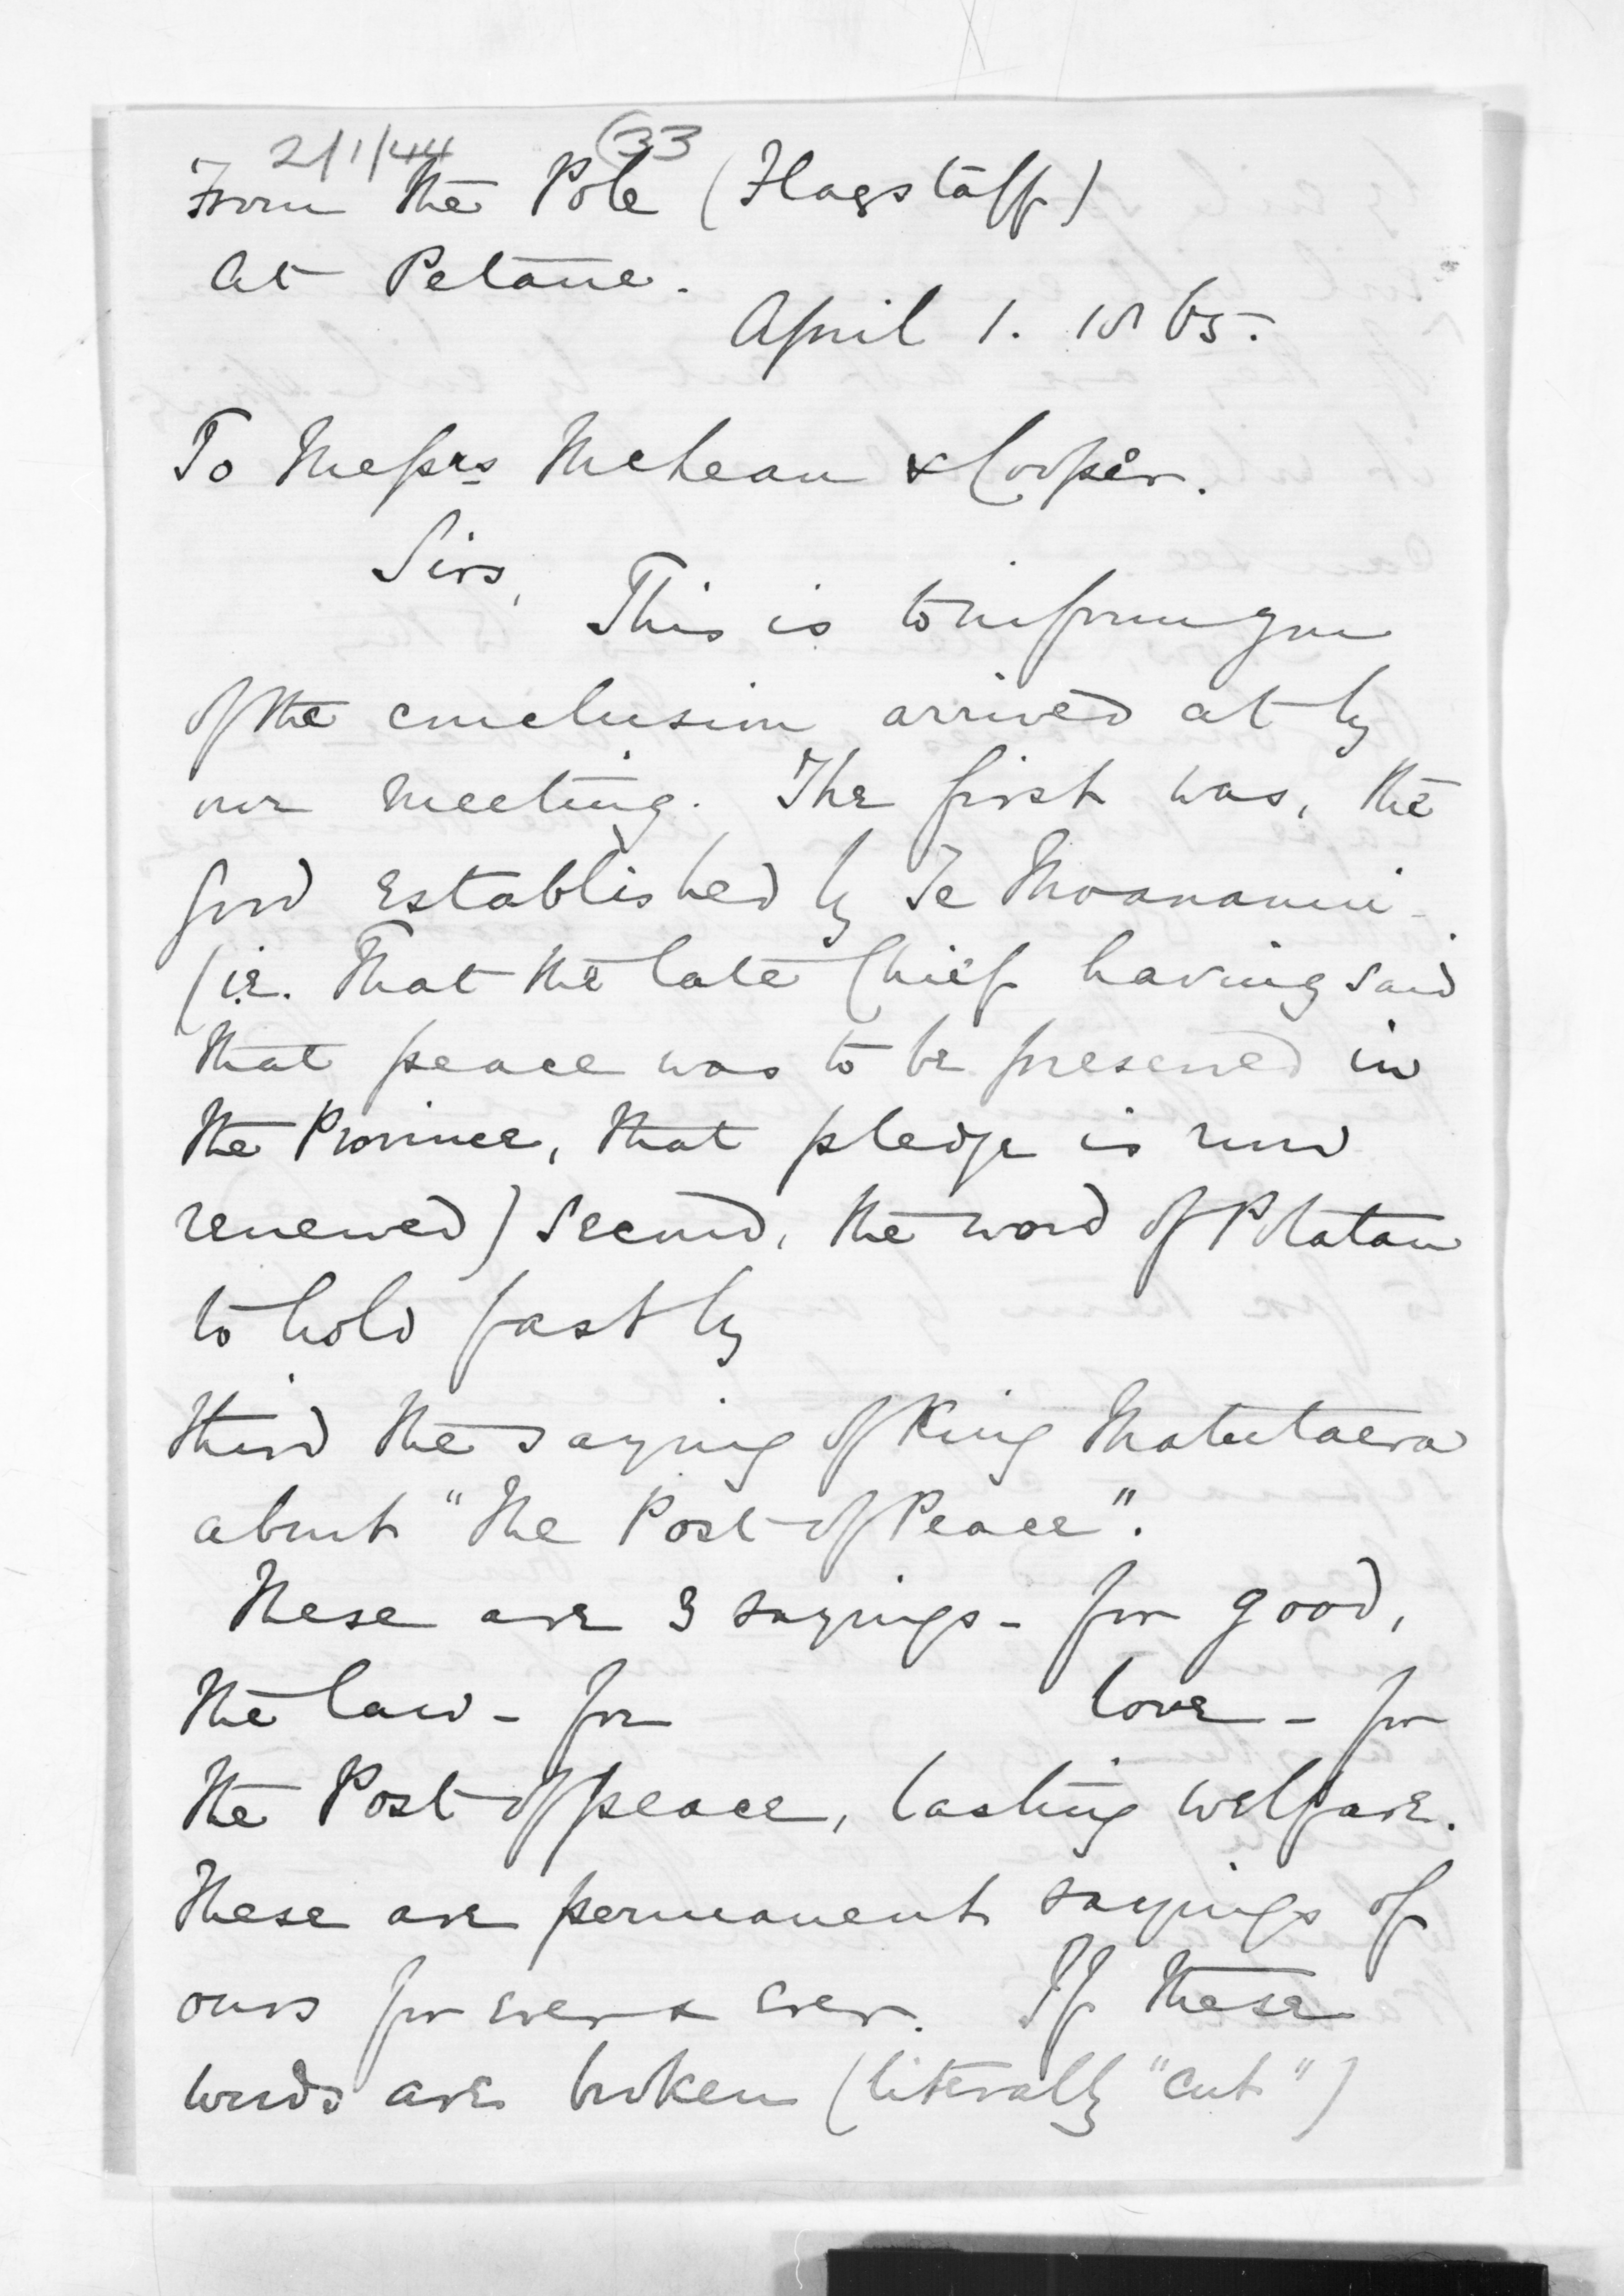 2/1/44 (33
From the Pole (Flagstaff)
at Petane.
April 1. 1865.
To Messrs McLean & Cooper.
Sirs,
This is to inform you
of the conclusion arrived at by
our meeting. The first was, the
good established by Te Moananui
(i.e. That the late Chief having said
that peace was to be preserved in
the Province, that pledge is now
renewed) Second, the word of Potatau
to hold fast by
third the saying of King Matutaera
about "the Post of Peace".
These are 3 sayings - for good,
the law - for love - for
the Post of peace, lasting welfare.
These are permanent sayings of
ours for ever & ever. If these
words are broken (literally "cut")